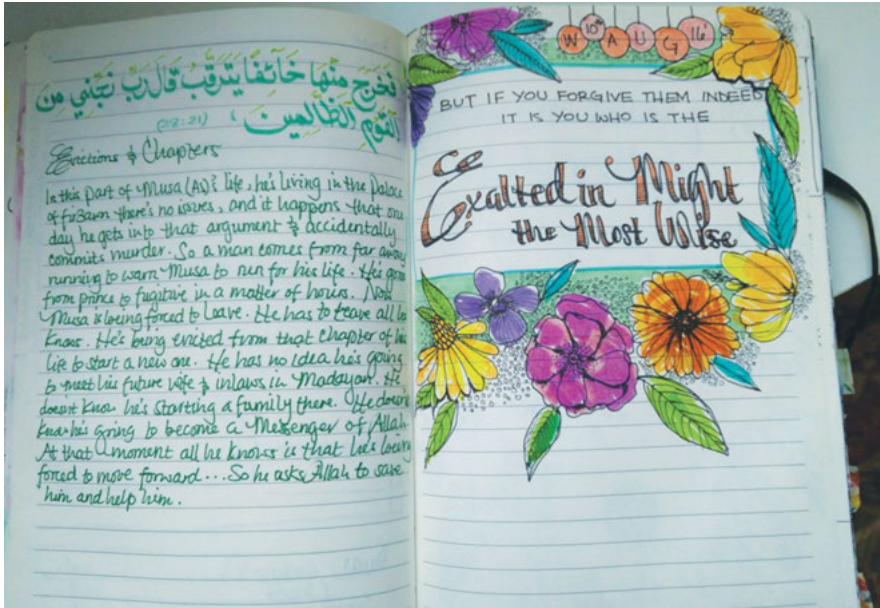 فَخَرَجَ مِنْهَا خَآئِفًا يَتَرَقَّبُ قَالَ رَبِّ نَجِّنِي مِنَ
الْقَوْمِ الظَّالِمِينَ (28:21)
Evictions & Chapters
In this part of Musa (AS)'s life, he's living in the Palace
of fir3awn there's no issues, and it happens that one
day he gets into that argument & accidentally
commits murder. So a man comes from far away
running to warn Musa to run for his life. He goes
from prince to fugitive in a matter of hours. Now
Musa is being forced to leave. He has to leave all he
knows. He's being evicted from that chapter of his
life to start a new one. He has no idea he's going
to meet his future wife & inlaws in Madayan. He
doesn't know he's starting a family there. He doesn't
know he's going to become a Messenger of Allah.
At that moment all he knows is that he's being
forced to move forward... So he asks Allah to save
him and help him.
W 10th A U G 16
BUT IF YOU FORGIVE THEM INDEED
IT IS YOU WHO IS THE
Exalted in Might
the Most Wise